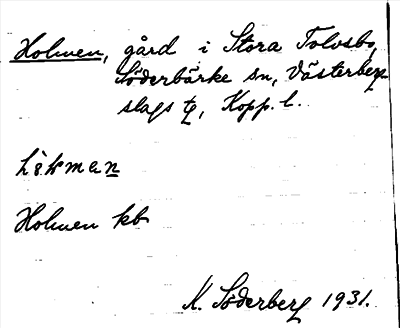 Holmen, gård i Stora Tolvsbo,
Söderbärke sn, Västerbergs
slags tg, Kopp. l.
Holmen kb
K. Söderberg 1931.